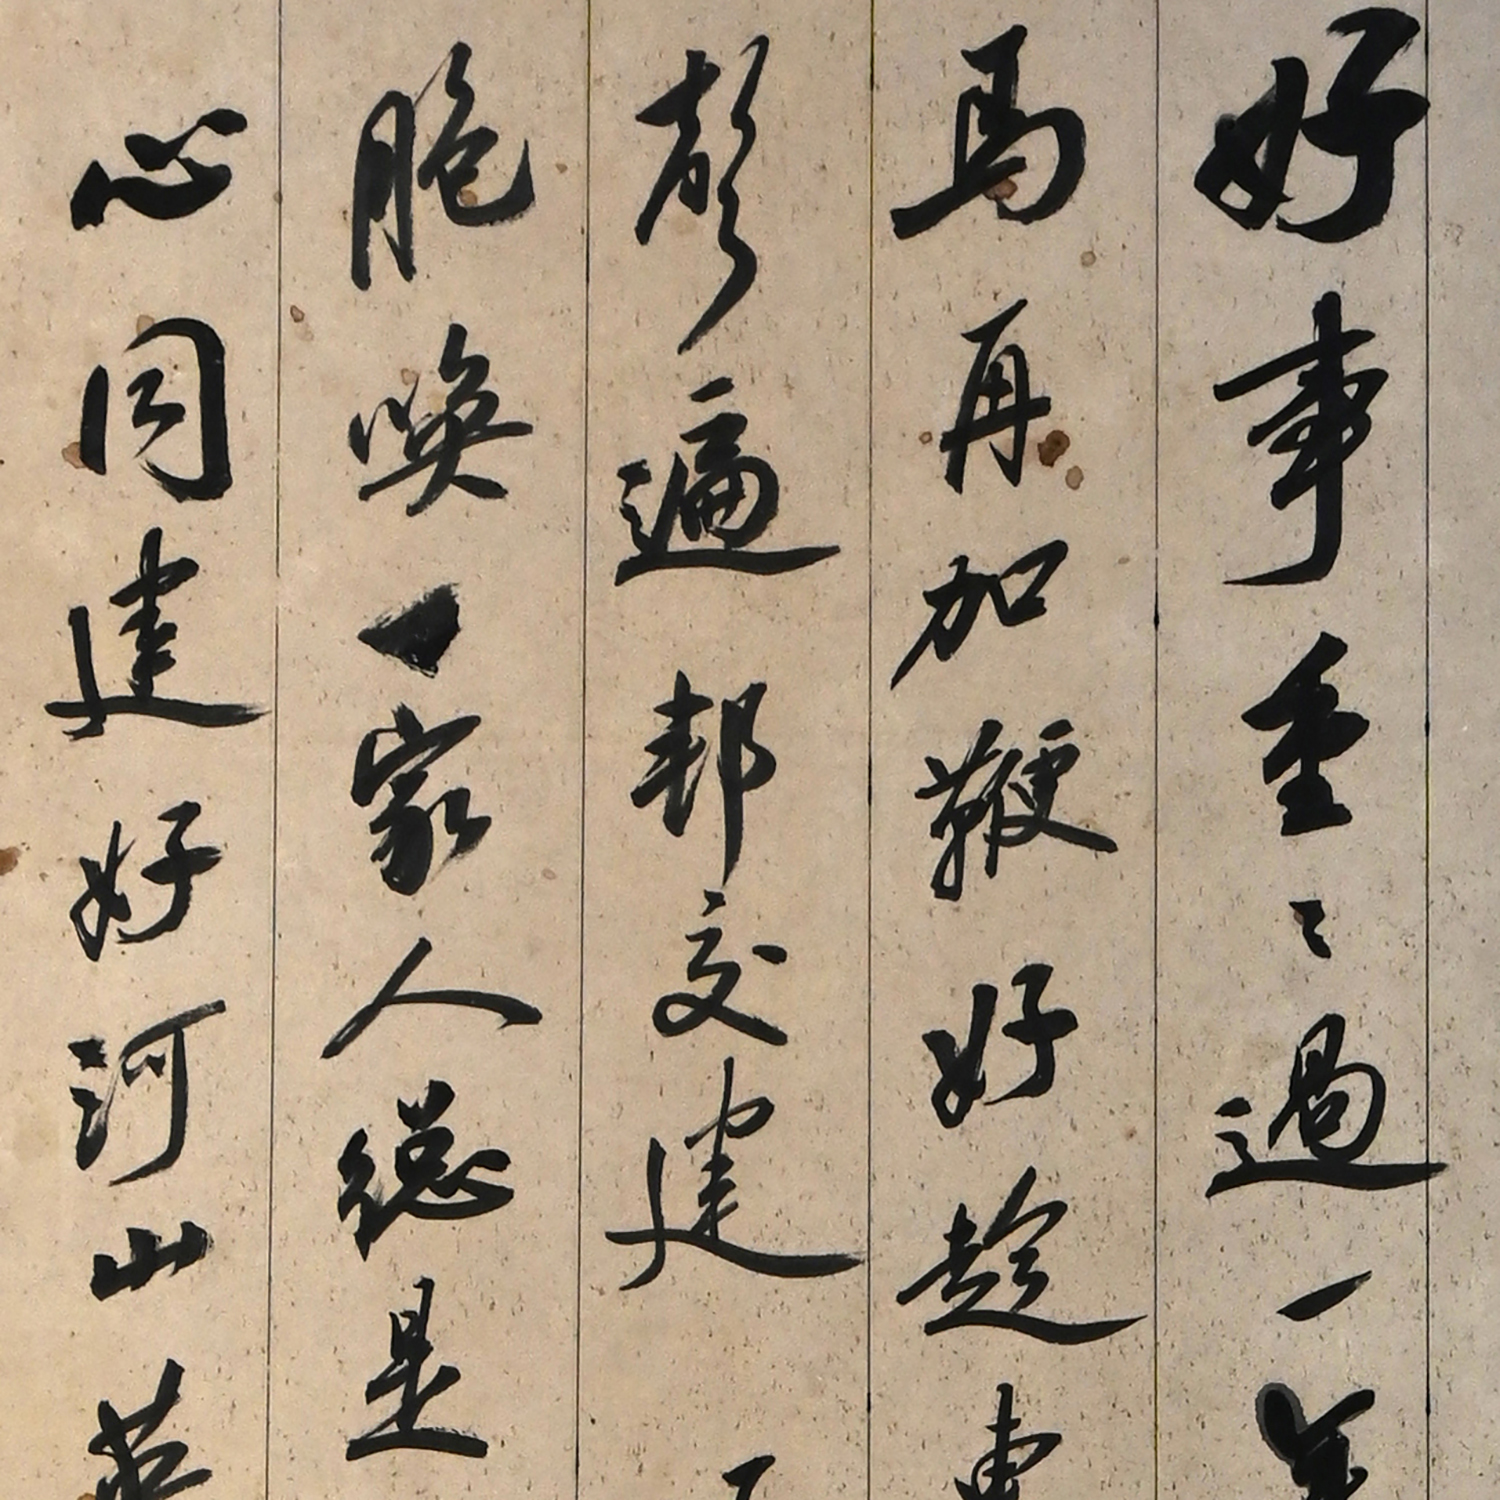 好事重々過一
馬再加鞭好趁
聲遍邦交建
胞喚一家人總是
心同建好河山